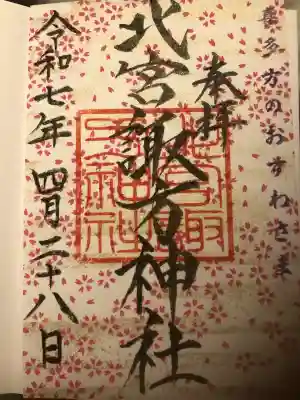 喜多方のおすわさま
奉拝
北宮諏方神社
令和七年 四月二十八日